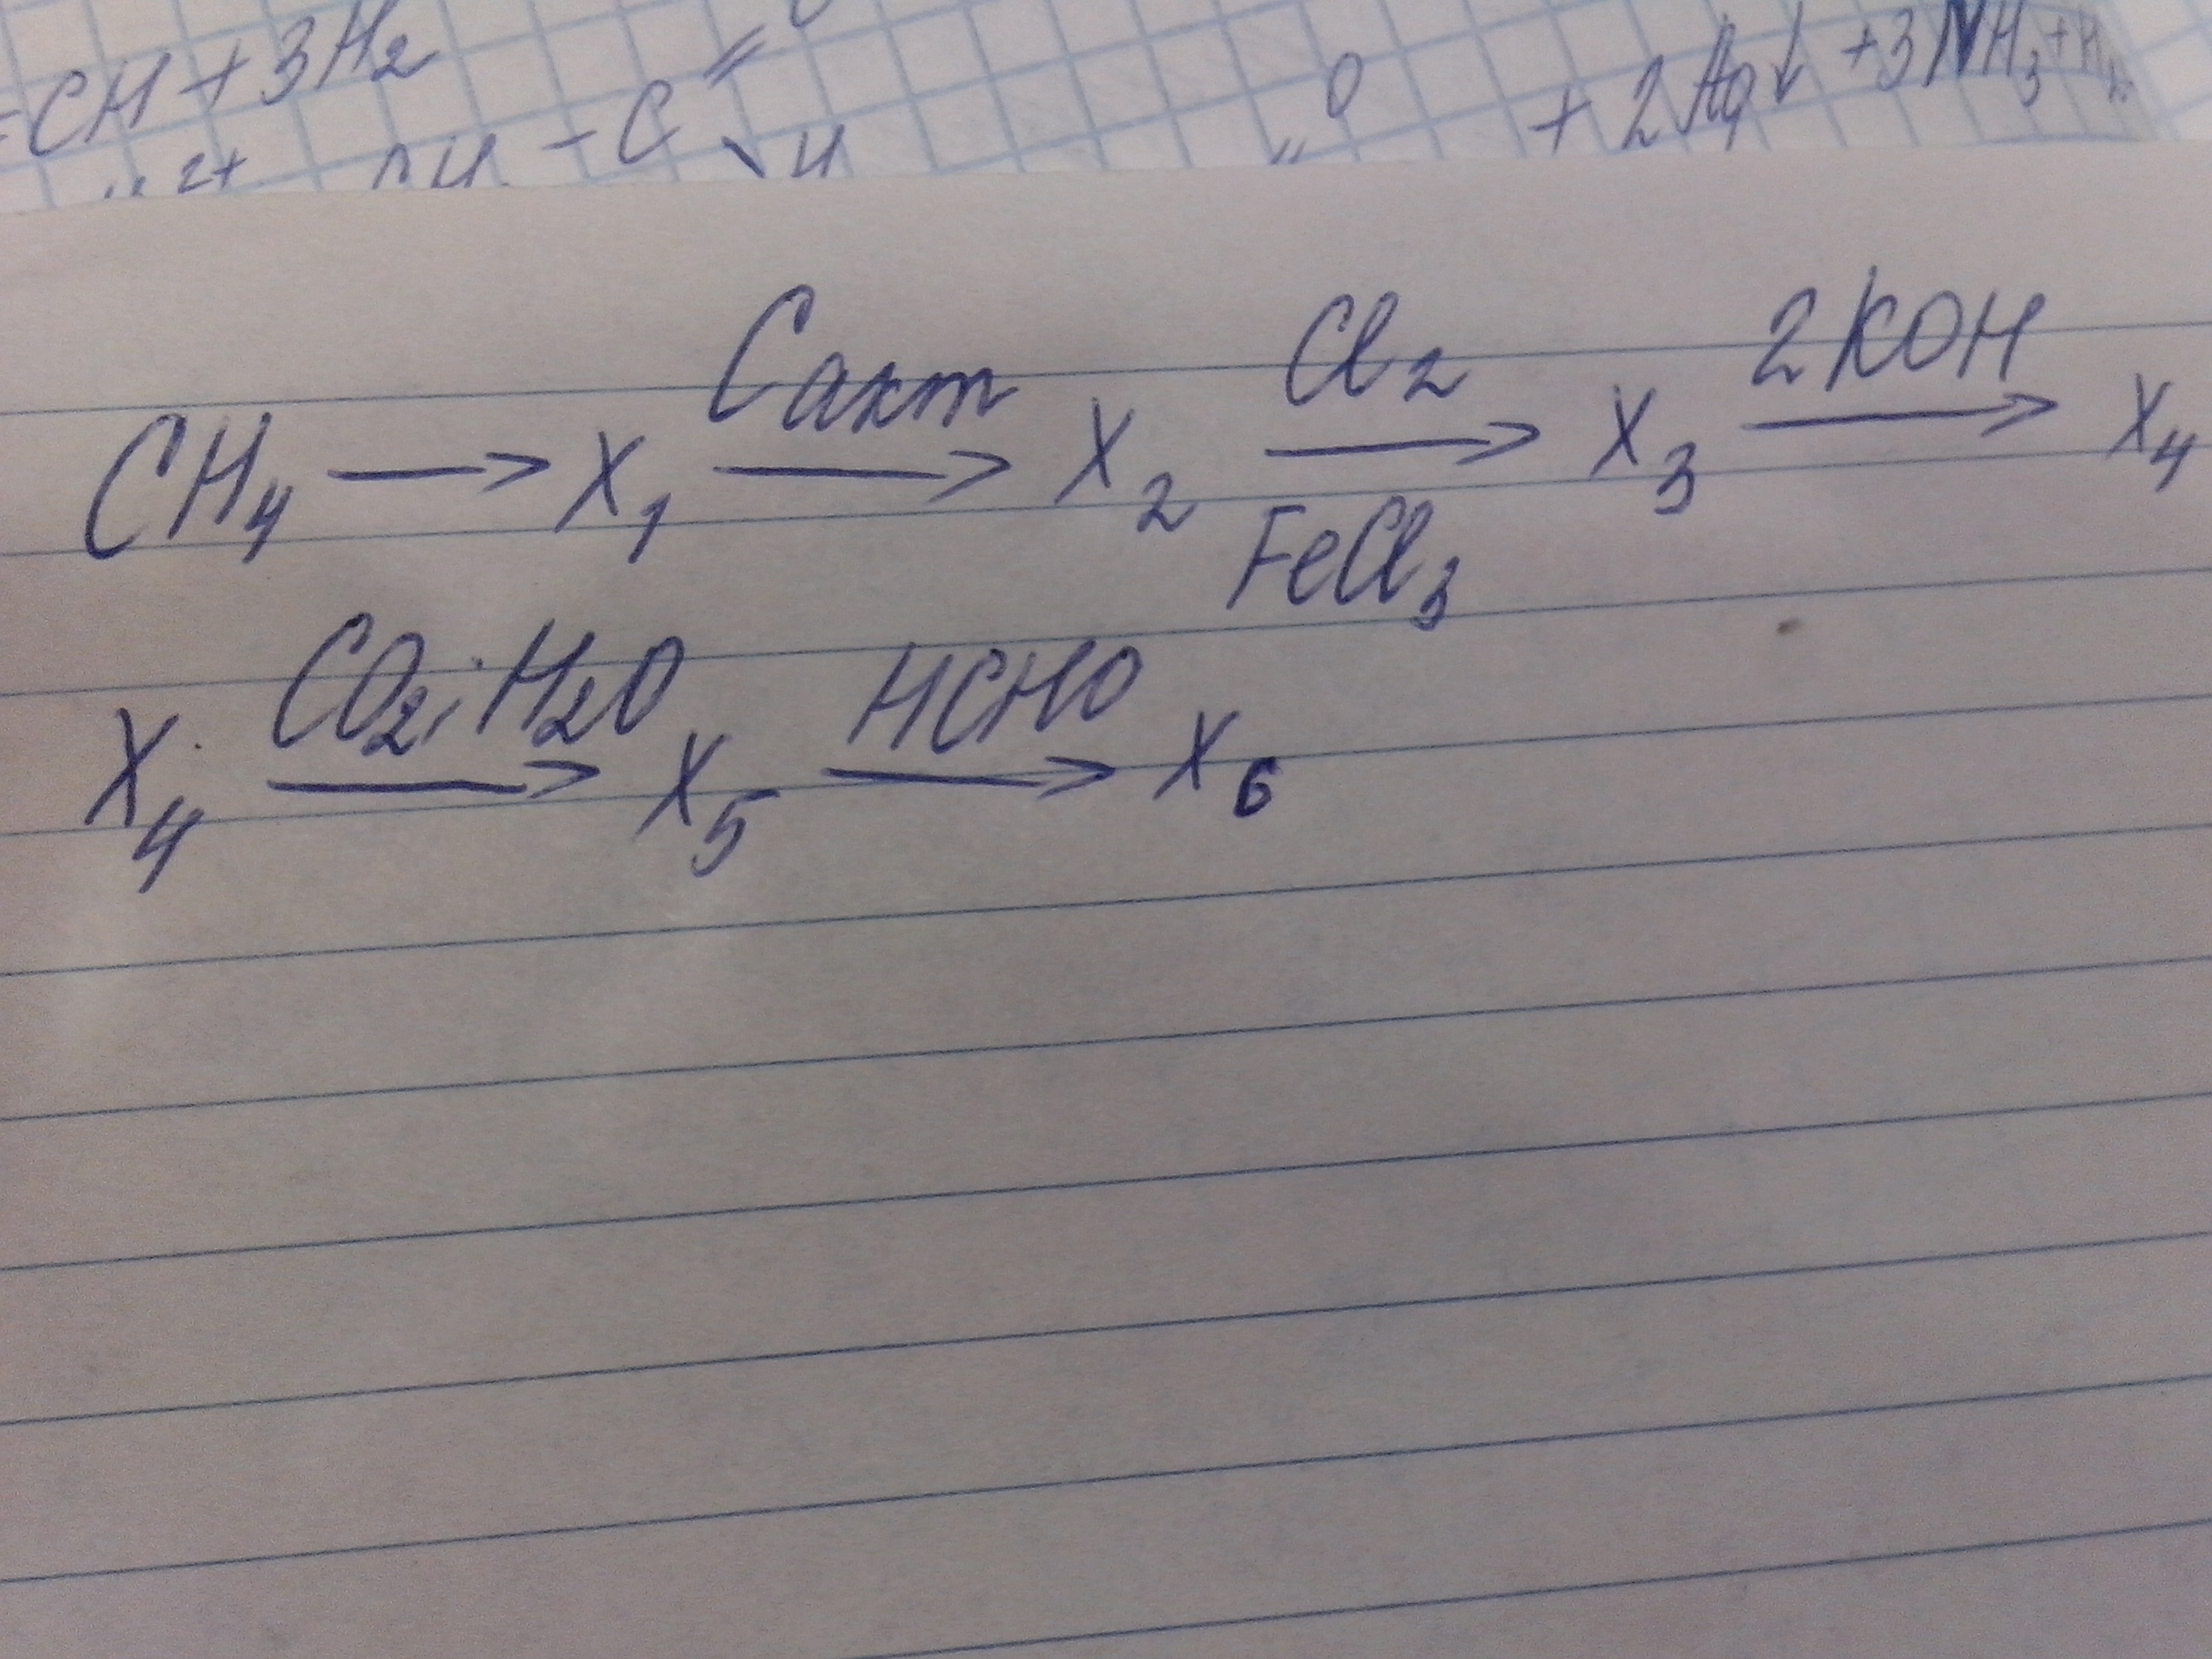 =CH + 3H₂
+ 2Ag↓ + 3NH₃ + H₂
2+ – C O
CH₄ → X₁ Cакт → X₂ Cl₂ → FeCl₃ X₃ 2KOH → X₄
X₄ CO₂, H₂O → X₅ HCHO → X₆